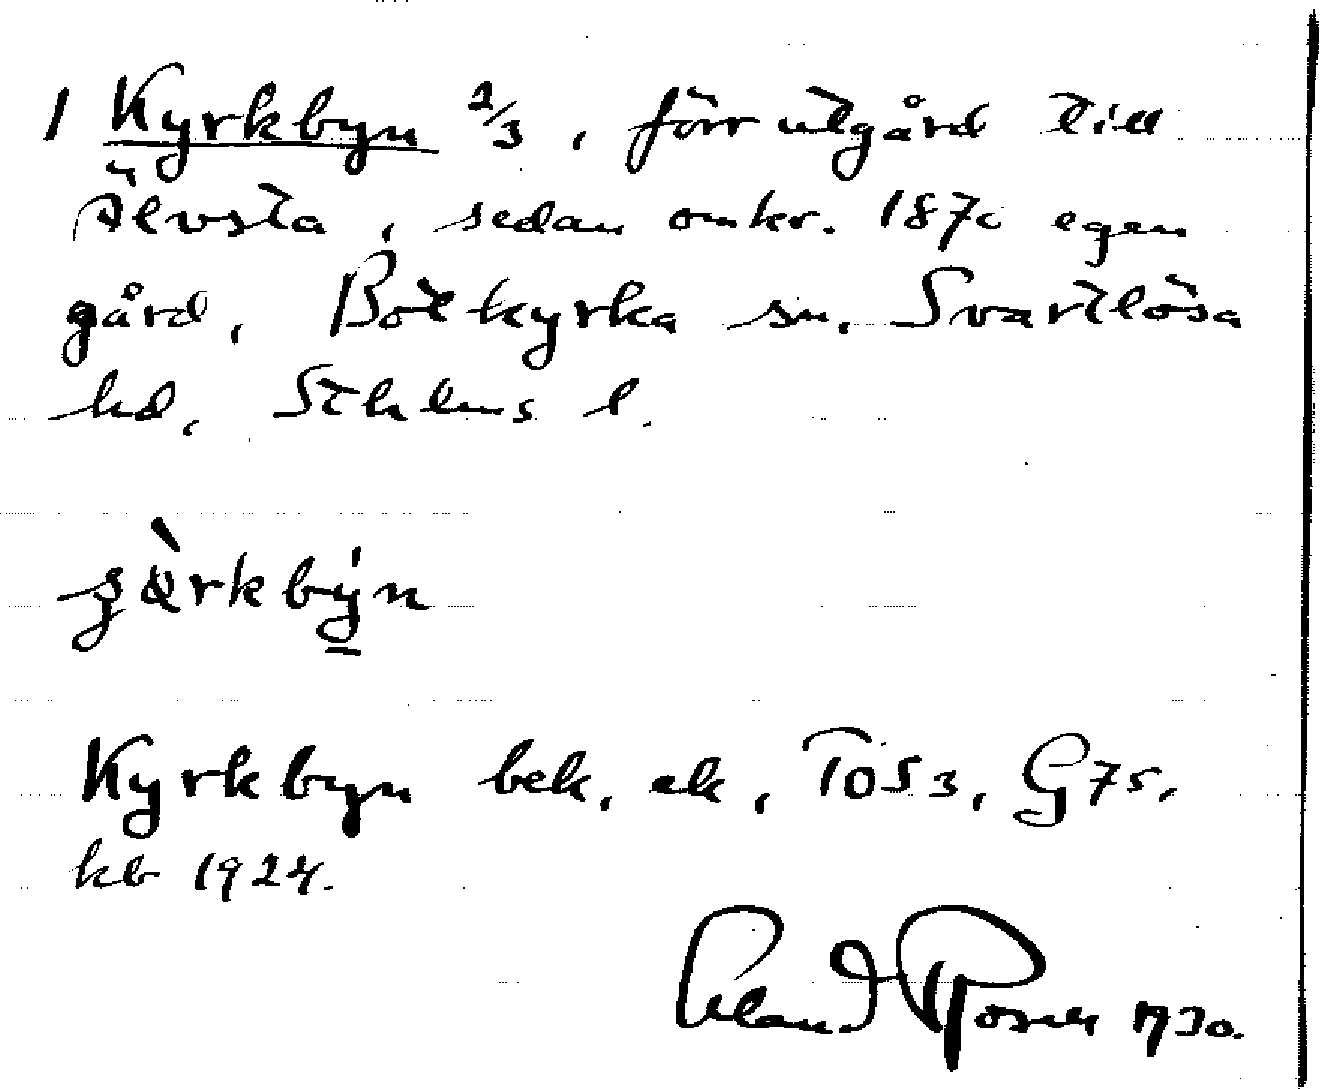 1 Kyrkbyn 2/3, förr utgård till
Älvsta, sedan omkr. 1870 egen
gård, Botkyrka sn. Svartlösa
hd, Sthlms l.
Kyrkbyn bek, ek, TOS3, G75,
kb 1924.
1930.